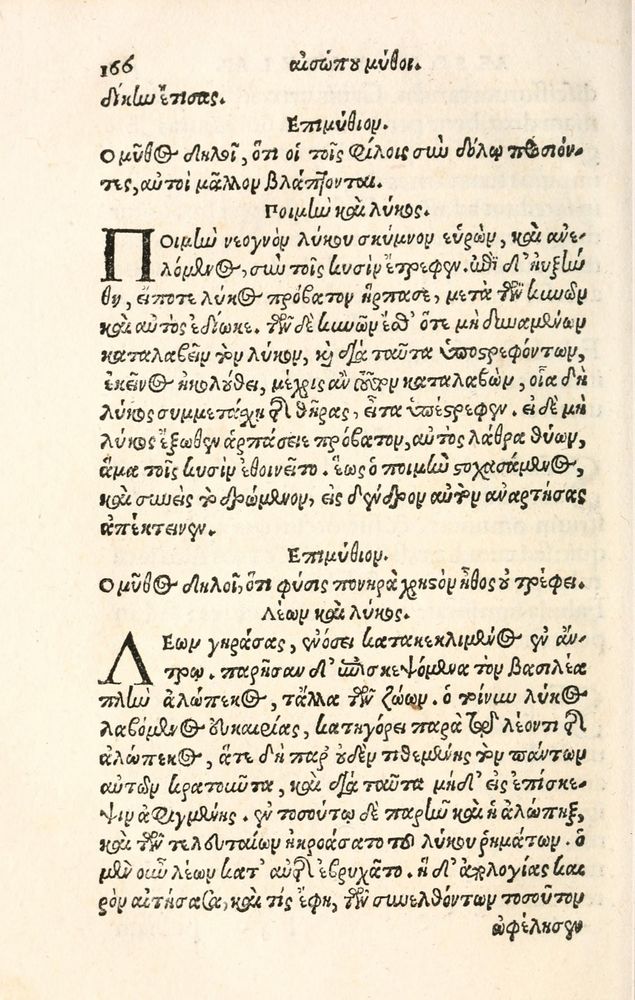 166 αἰσώπου μῦθοι.
δίκην ἔτισας.
Ἐπιμύθιον.
Ο μῦθος δηλοῖ, ὅτι οἱ τοῖς φίλοις σὺν δόλῳ προσιόν-
τες, αὐτοὶ μᾶλλον βλάπτονται.
Ποιμὴν καὶ λύκος.
ΠΟιμὴν νεογνὸν λύκου σκύμνον εὑρὼν, καὶ ἀνε-
λόμενος, σὺν τοῖς κυσὶν ἔτρεφεν. ἐπεὶ δ' ηὐξήν
θη, εἴ ποτε λύκος πρόβατον ἥρπασε, μετὰ τῶν κυνῶν
καὶ αὐτὸς ἐδίωκε. τῶν δὲ κυνῶν ἔσθ' ὅτε μὴ δυναμένων
καταλαβεῖν τὸν λύκον, καὶ διὰ ταῦτα ὑποστρεφόντων,
ἐκεῖνος ἠκολούθει, μέχρις ἂν τοῦτον καταλαβὼν, οἷα δὴ
λύκος συμμετάσχῃ τῆς θήρας, εἶτα ὑπέστρεφεν. εἰ δὲ μὴ
λύκος ἔξωθεν ἁρπάσειε πρόβατον, αὐτὸς λάθρα θύων,
ἅμα τοῖς κυσὶν ἐθοινεῖτο. ἕως ὁ ποιμὴν στοχασάμενος,
καὶ συνεὶς τὸ δρώμενον, εἰς δένδρον αὐτὸν ἀναρτήσας
ἀπέκτεινεν.
Ἐπιμύθιον.
Ο μῦθος δηλοῖ, ὅτι φύσις πονηρὰ χρηστὸν ἦθος οὐ τρέφει.
Λέων καὶ λύκος.
ΛΕων γηράσας, ἐνόσει κατακεκλιμένος ἐν ἄν-
τρῳ. παρῆσαν δ' ἐπισκεψόμενα τὸν βασιλέα
πλὴν ἀλώπεκος, τἄλλα τῶν ζώων. ὁ τοίνυν λύκος
λαβόμενος εὐκαιρίας, κατηγόρει παρὰ τῷ λέοντι τῆς
ἀλώπεκος, ἅτε δὴ παρ' οὐδὲν τιθεμένης τὸν πάντων
αὐτῶν κρατοῦντα, καὶ διὰ ταῦτα μηδ' εἰς ἐπίσκε-
ψιν ἀφιγμένης. ἐν τοσούτῳ δὲ παρῆν καὶ ἡ ἀλώπηξ,
καὶ τῶν τελευταίων ἠκροάσατο τοῦ λύκου ῥημάτων. ὁ
μὲν οὖν λέων κατ' αὐτῆς ἐβρυχᾶτο. ἡ δ' ἀπολογίας και
ρὸν αἰτήσασα, καὶ τίς ἔφη, τῶν συνελθόντων τοσοῦτον
ὠφέλησεν